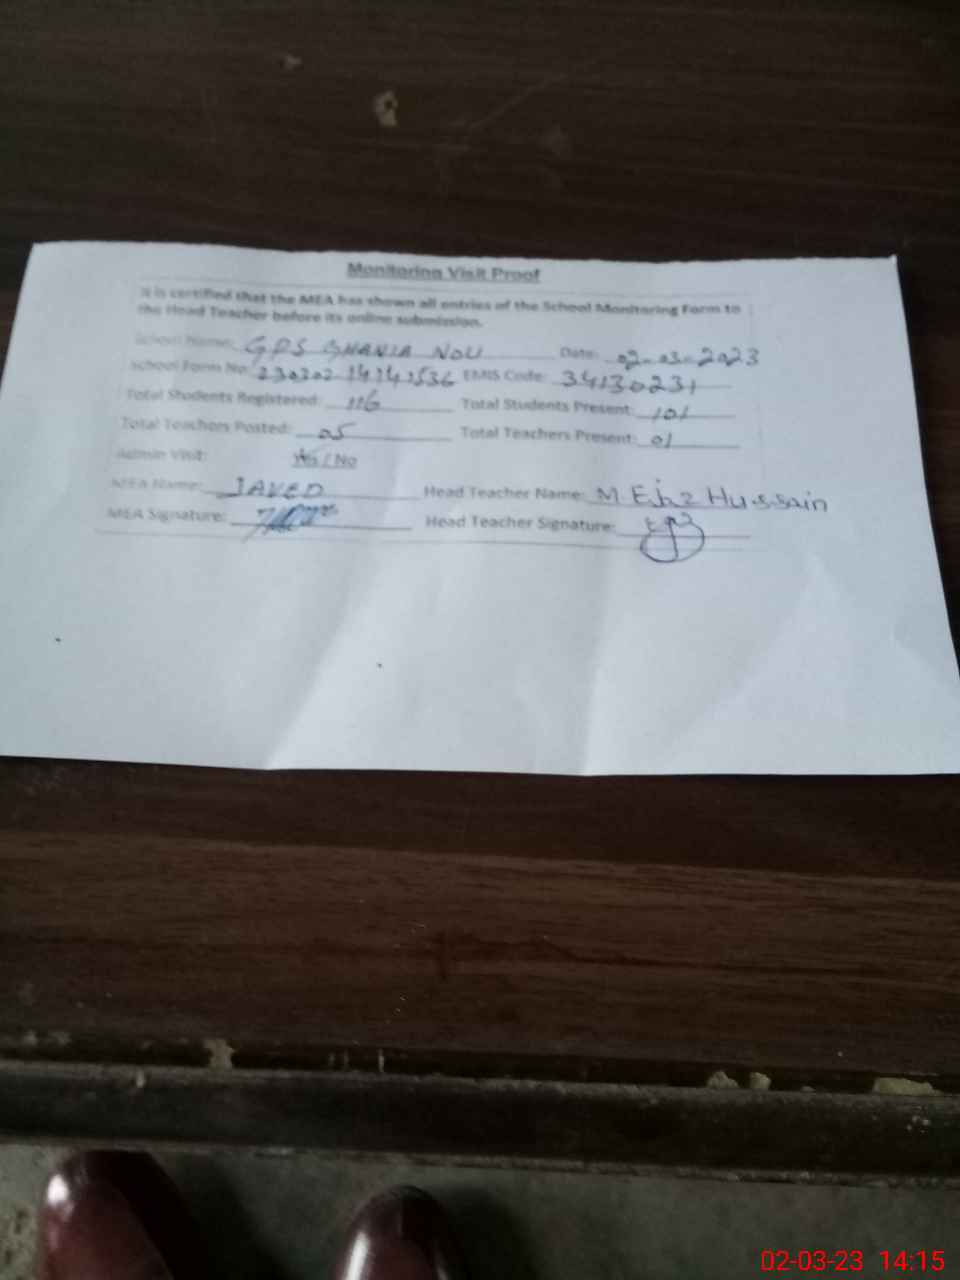 Monitoring Visit Proof
It is certified that the MEA has shown all entries of the School Monitoring Form to
the Head Teacher before its online submission.
School Name: GPS BHANIA NOU Date: 02-03-2023
School Form No: EMIS Code: 34130231
Total Students Registered: 116 Total Students Present: 101
Total Teachers Posted: 05 Total Teachers Present: 01
Admin Visit: Yes / No
MEA Name: JAVED Head Teacher Name: M Ejaz Hussain
MEA Signature: Head Teacher Signature:
02-03-23 14:15